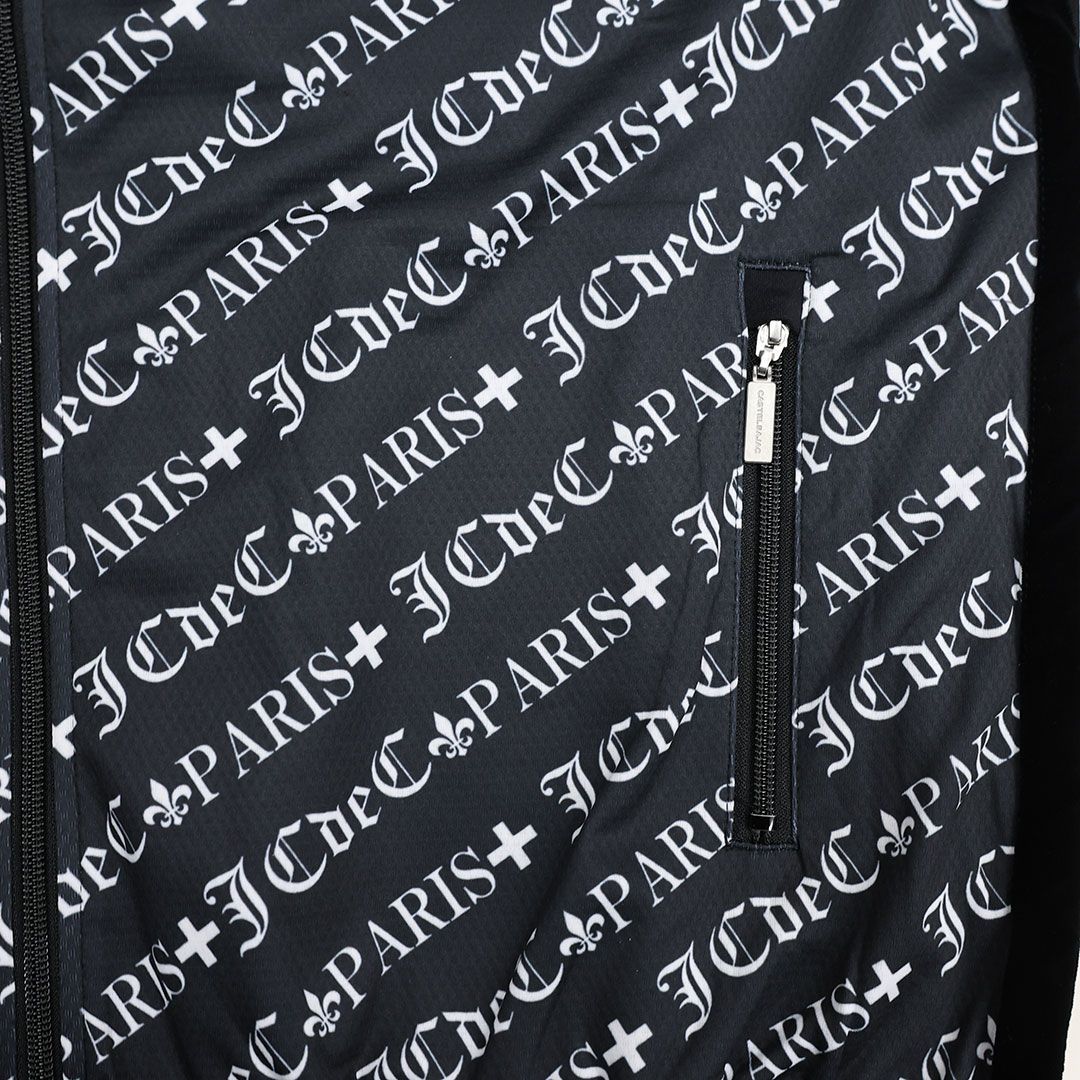 PARIS JCdeC PARIS
JCdeC PARIS JCdeC PARIS
JCdeC PARIS JCdeC
deC PARIS JCdeC PARIS
PARIS JCdeC PARIS JCdeC
JCdeC PARIS JCdeC PARIS
PARIS JCdeC PARIS JCdeC
deC PARIS JCdeC PARIS
PARIS JCdeC PARIS JCdeC
CASTELBAJAC